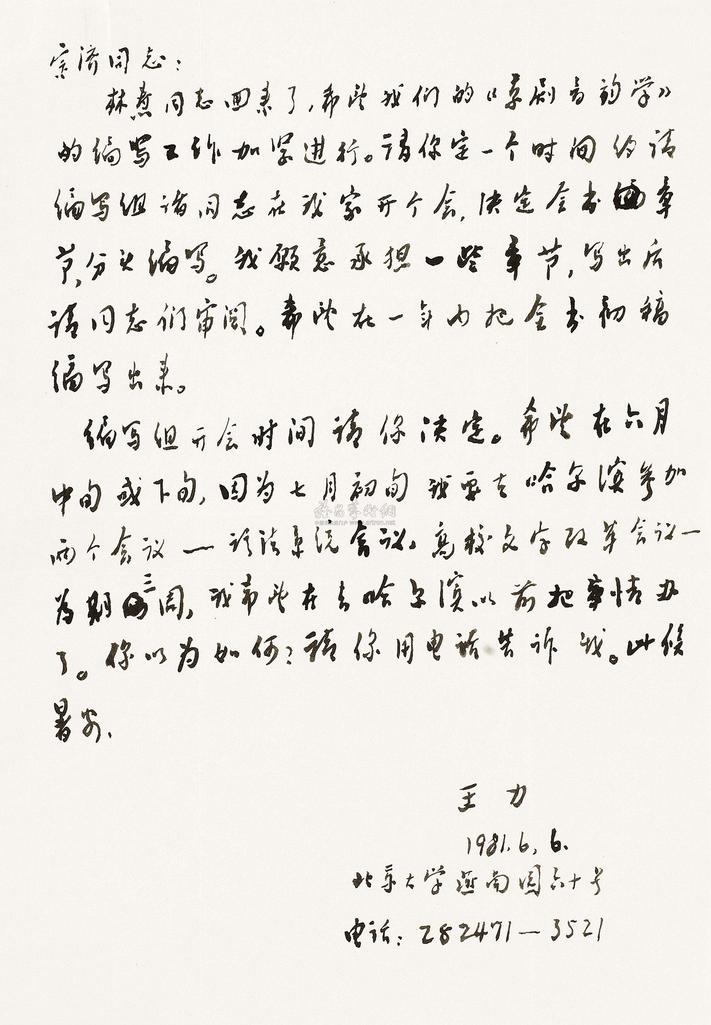 宗济同志：
林焘同志回来了，希望我们的《京剧音韵学》
的编写工作加紧进行。请你定一个时间约请
编写组诸同志在我家开个会，决定全书章
节，分头编写。我愿意承担一些章节，写出后
请同志们审阅。希望在一年内把全书初稿
编写出来。
编写组开会时间请你决定。希望在六月
中旬或下旬，因为七月初旬我要去哈尔滨参加
两个会议—语法系统会议，高校文字改革会议—
为期三周，我希望在去哈尔滨以前把事情办
了。你以为如何？请你用电话告诉我。此候
暑安.
王力
1981.6.6.
北京大学燕南园六十号
电话：282471—3521